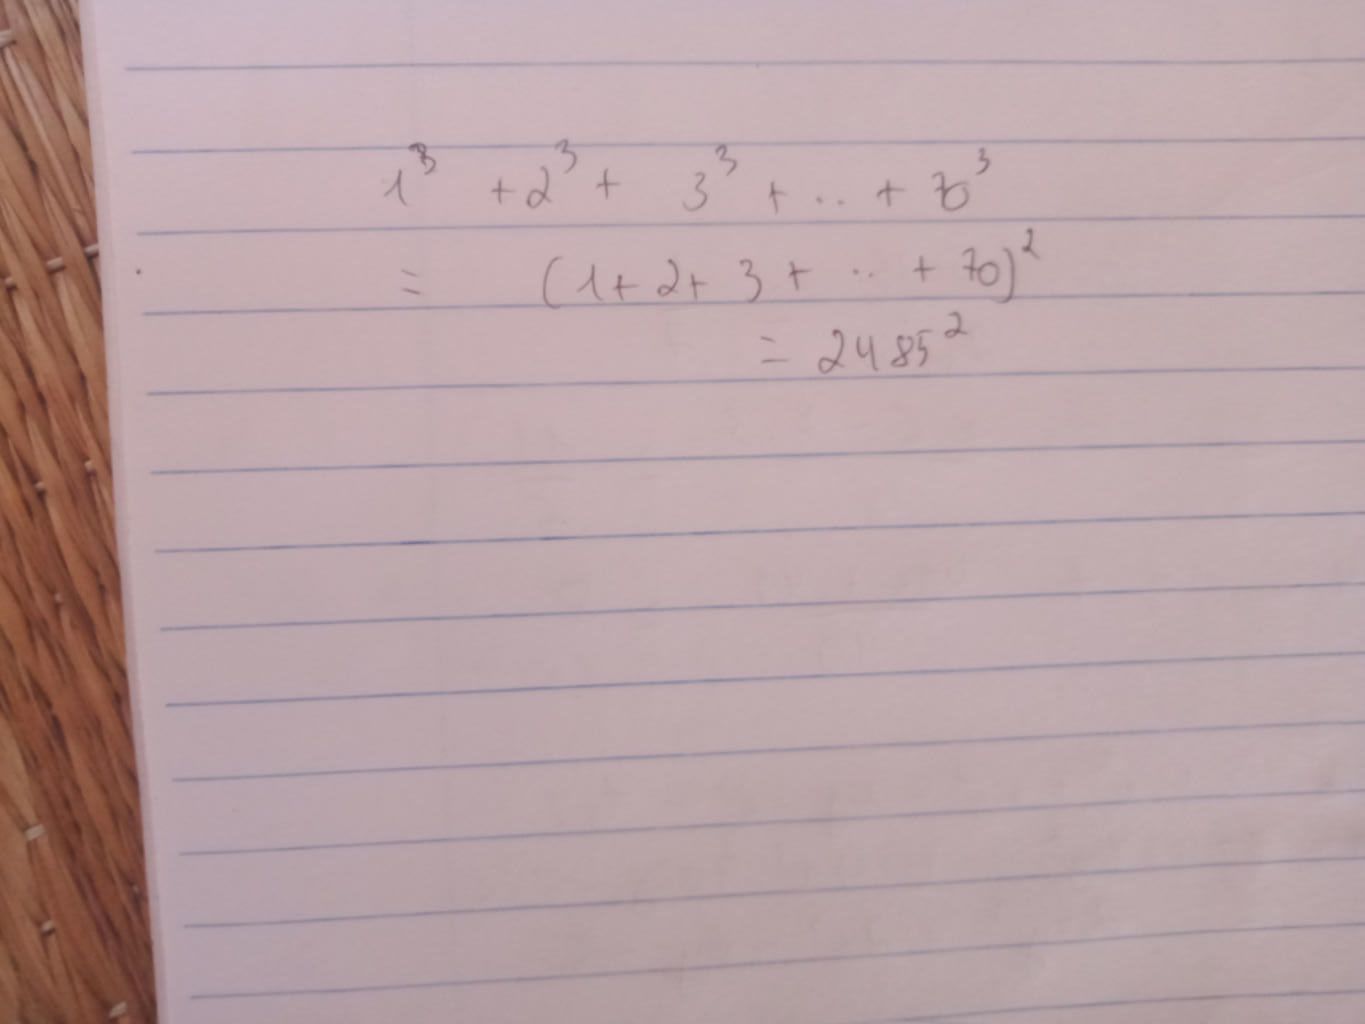 1³ + 2³ + 3³ + .. + 70³
= (1 + 2 + 3 + .. + 70)²
= 2485²